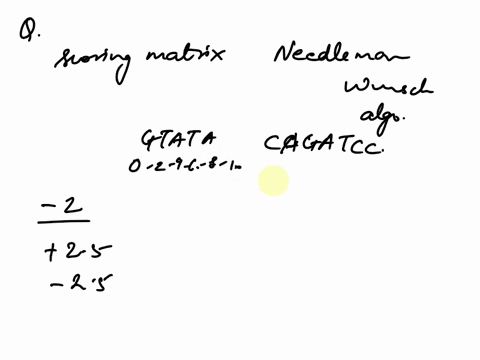 Q.
scoring matrix Needleman
Wunsch
algo.
GTATA CAGATCC.
0 -2 -4 -6 -8 -10
-2
+2.5
-2.5